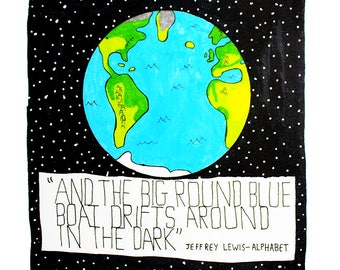 "AND THE BIG ROUND BLUE
BOAT DRIFTS AROUND
IN THE DARK"
JEFFREY LEWIS-ALPHABET